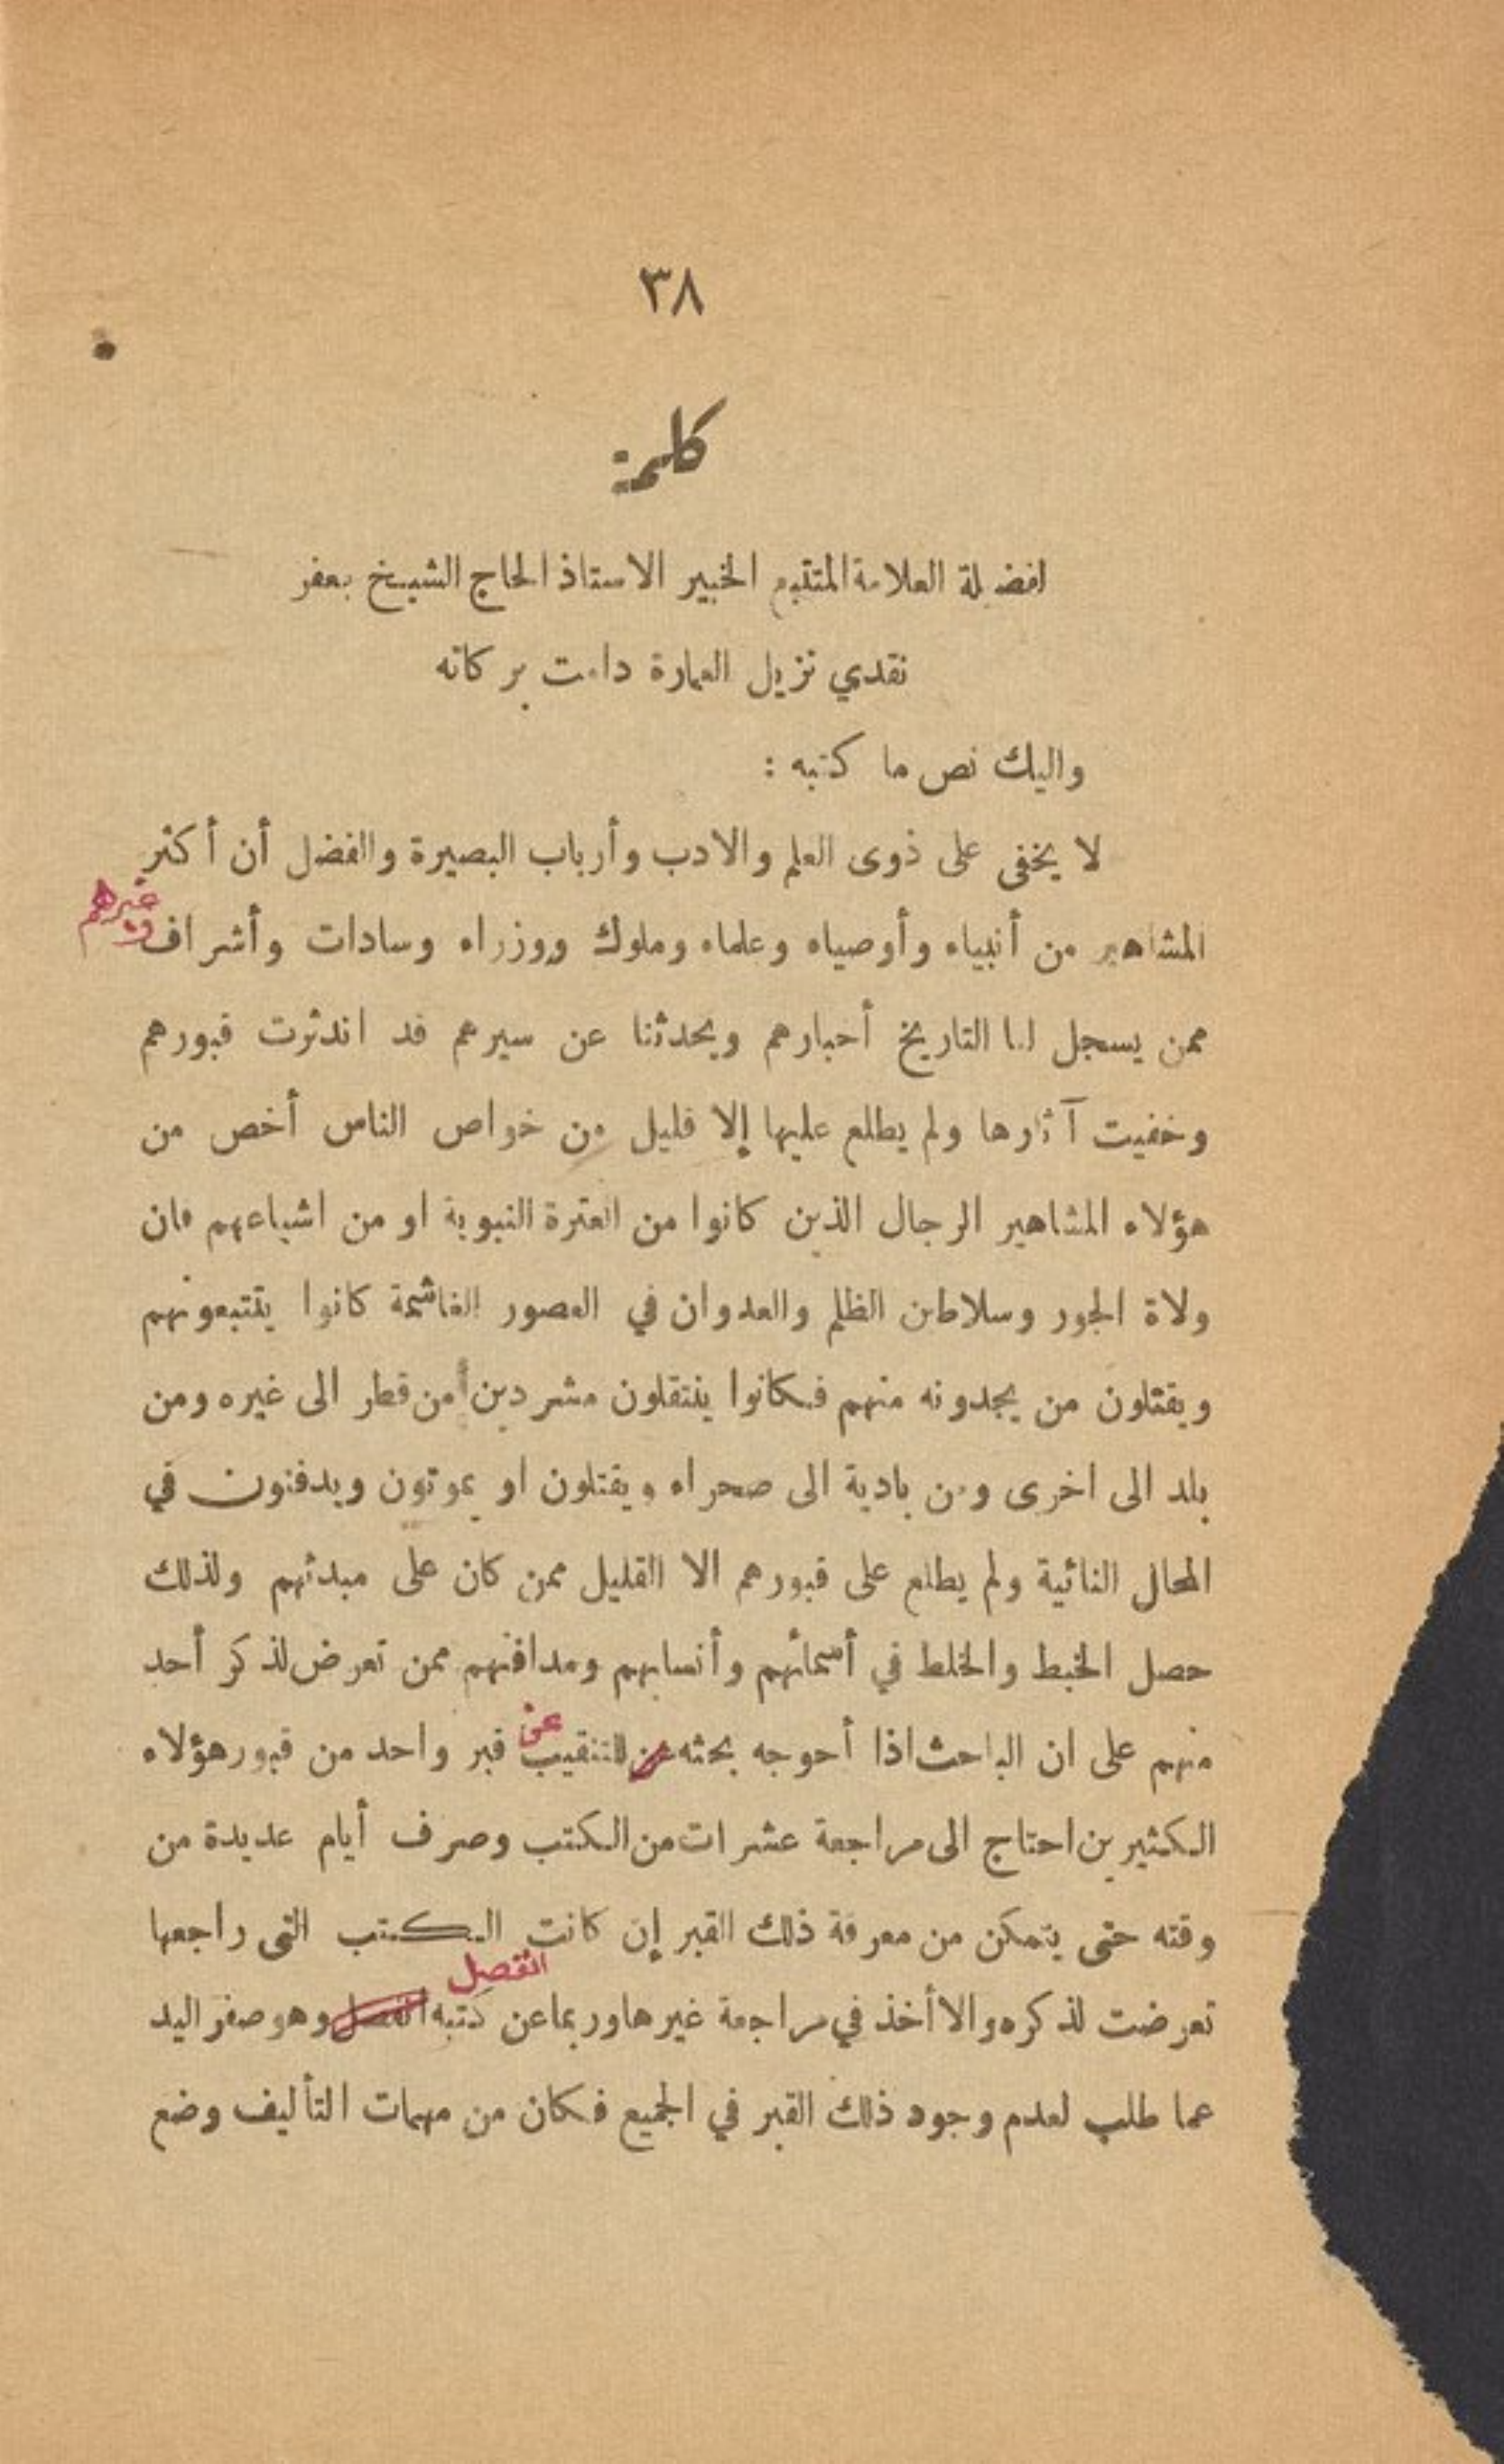 ٣٨
كلمة
لفضيلة العلامة المتتبع الخبير الاستاذ الحاج الشيخ جعفر
نقدي نزيل العمارة دامت بركاته
واليك نص ما كتبه :
لا يخفى على ذوى العلم والادب وأرباب البصيرة والفضل أن أكثر
المشاهير من أنبياء وأوصياء وعلماء وملوك ووزراء وسادات وأشراف وغيرهم
ممن يسجل لنا التاريخ أخبارهم ويحدثنا عن سيرهم قد اندثرت قبورهم
وخفيت آثارها ولم يطلع عليها إلا قليل من خواص الناس أخص من
هؤلاء المشاهير الرجال الذين كانوا من العترة النبوية او من اشياعهم فان
ولاة الجور وسلاطين الظلم والعدوان في العصور الغاشمة كانوا يتتبعونهم
ويقتلون من يجدونه منهم فكانوا ينتقلون مشردين من قطر الى غيره ومن
بلد الى اخرى ومن بادية الى صحراء ويقتلون او يموتون ويدفنون في
المحال النائية ولم يطلع على قبورهم الا القليل ممن كان على مبدئهم ولذلك
حصل الخبط والخلط في أسمائهم وأنسابهم ومدافنهم ممن تعرض لذكر أحد
منهم على ان الباحث اذا أحوجه بحثه للتنقيب عن قبر واحد من قبور هؤلاء
الكثيرين احتاج الى مراجعة عشرات من الكتب وصرف أيام عديدة من
وقته حتى يتمكن من معرفة ذلك القبر إن كانت الكتب التى راجعها
تعرضت لذكره والا أخذ في مراجعة غيرها وربما عن كتبه انفصل وهو صفر اليد
عما طلب لعدم وجود ذلك القبر في الجميع فكان من مهمات التأليف وضع